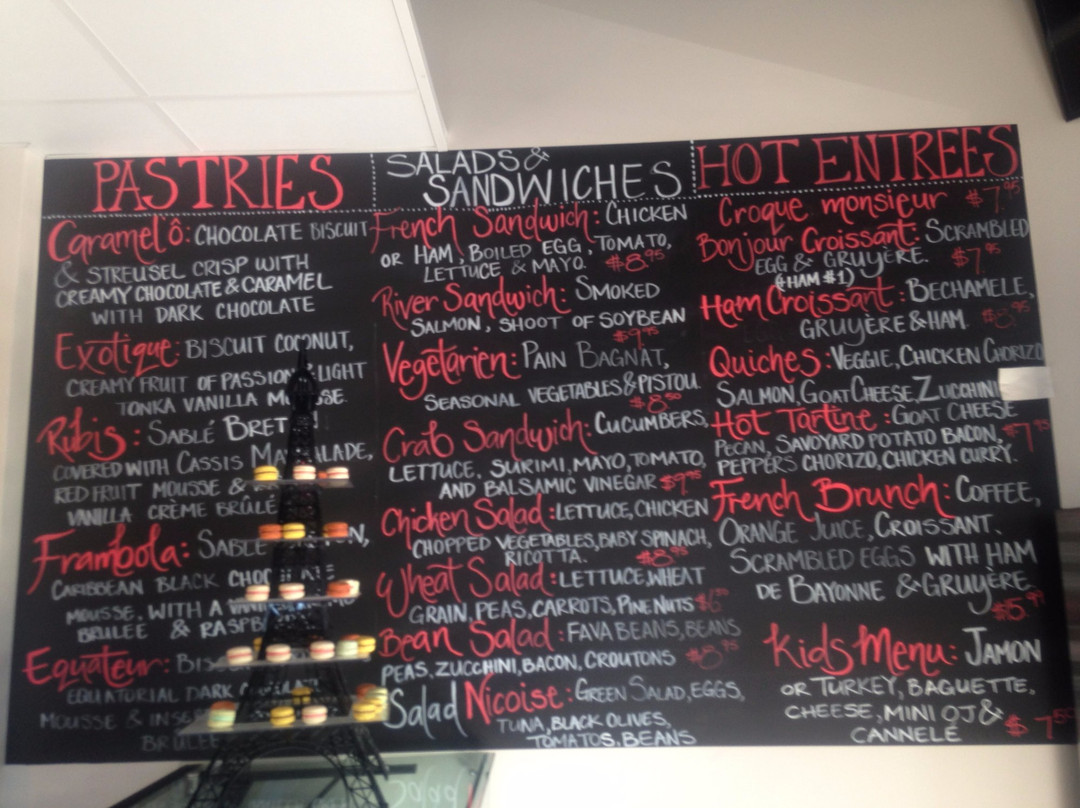 PASTRIES
Caramel ô: CHOCOLATE BISCUIT
& STREUSEL CRISP WITH
CREAMY CHOCOLATE & CARAMEL
WITH DARK CHOCOLATE
Exotique: BISCUIT COCONUT,
CREAMY FRUIT OF PASSION & LIGHT
TONKA VANILLA
Rubis: SABLÉ
COVERED WITH CASSIS
RED FRUIT MOUSSE &
VANILLA CRÈME BRÛLÉ
Frambola: SABLÉ
CARIBBEAN BLACK
MOUSSE, WITH A
BRULÉE &
Equateur:
EQUATORIAL DARK
MOUSSE &
SALADS &
SANDWICHES
French Sandwich: CHICKEN
OR HAM, BOILED EGG, TOMATO,
LETTUCE & MAYO. $8.95
River Sandwich: SMOKED
SALMON, SHOOT OF SOYBEAN
$9.95
Vegetarien: PAIN BAGNAT,
SEASONAL VEGETABLES & PISTOU.
$8.50
Crab Sandwich: CUCUMBERS,
LETTUCE, SURIMI, MAYO, TOMATO,
AND BALSAMIC VINEGAR $9.95
Chicken Salad: LETTUCE, CHICKEN
CHOPPED VEGETABLES, BABY SPINACH,
RICOTTA. $8.95
Wheat Salad: LETTUCE, WHEAT
GRAIN, PEAS, CARROTS, PINE NUTS
Bean Salad: FAVA BEANS, BEANS
PEAS, ZUCCHINI, BACON, CROUTONS
Salad Nicoise: GREEN SALAD, EGGS,
TUNA, BLACK OLIVES,
TOMATOS, BEANS
HOT ENTREES
Croque monsieur $7.95
Bonjour Croissant: SCRAMBLED
EGG & GRUYÈRE. $7.95
(+HAM $1)
Ham Croissant: BECHAMELE,
GRUYÈRE & HAM
Quiches: VEGGIE, CHICKEN CHORIZO
SALMON, GOAT CHEESE, ZUCCHINI
Hot Tartine: GOAT CHEESE
PECAN, SAVOYARD POTATO BACON,
PEPPERS CHORIZO, CHICKEN CURRY.
French Brunch: COFFEE,
ORANGE JUICE, CROISSANT.
SCRAMBLED EGGS WITH HAM
DE BAYONNE & GRUYÈRE.
Kids Menu: JAMON
OR TURKEY, BAGUETTE,
CHEESE, MINI OJ &
CANNELE $7.50